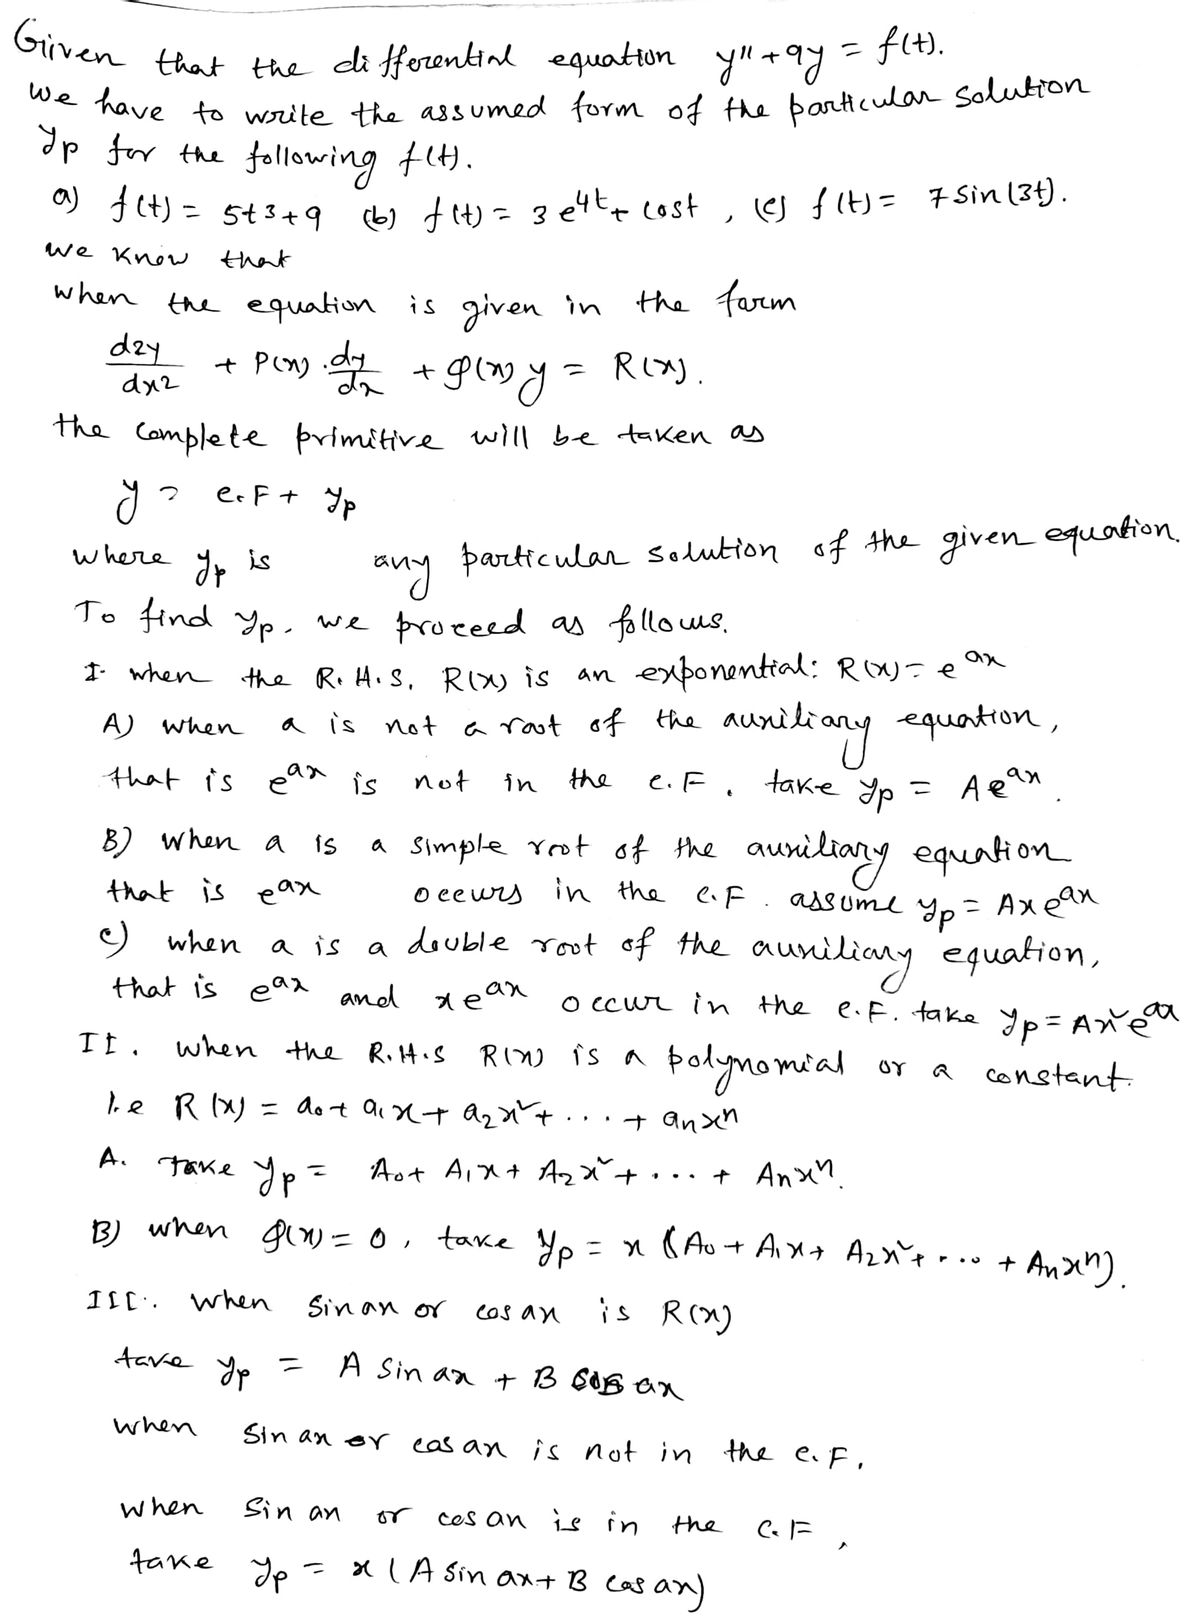 Given that the differential equation y'' + 9y = f(t).
we have to write the assumed form of the particular solution
yp for the following f(t).
a) f(t) = 5t3+9 (b) f(t) = 3 e^4t + cost , (c) f(t) = 7 sin(3t).
we know that
when the equation is given in the form
d2y/dx2 + P(x) . dy/dx + Q(x) y = R(x).
the complete primitive will be taken as
y = c.F + yp
where yp is any particular solution of the given equation.
To find yp. we proceed as follows.
I. when the R.H.S. R(x) is an exponential: R(x) = e^ax
A) when a is not a root of the auxiliary equation,
that is e^ax is not in the c.F. take yp = A e^ax.
B) when a is a simple root of the auxiliary equation
that is e^ax occurs in the c.F. assume yp = Ax e^ax
c) when a is a double root of the auxiliary equation,
that is e^ax and x e^ax occur in the c.F. take yp = Ax² e^ax
II. when the R.H.S R(x) is a polynomial or a constant.
i.e R(x) = a0 + a1x + a2x² + ... + anx^n
A. Take yp = A0 + A1x + A2x² + ... + Anx^n.
B) when Q(x) = 0, take yp = x (A0 + A1x + A2x² + ... + Anx^n).
III. when sin ax or cos ax is R(x)
take yp = A sin ax + B cos ax
when sin ax or cos ax is not in the c.F.
when sin ax or cos ax is in the C.F,
take yp = x (A sin ax + B cos ax)